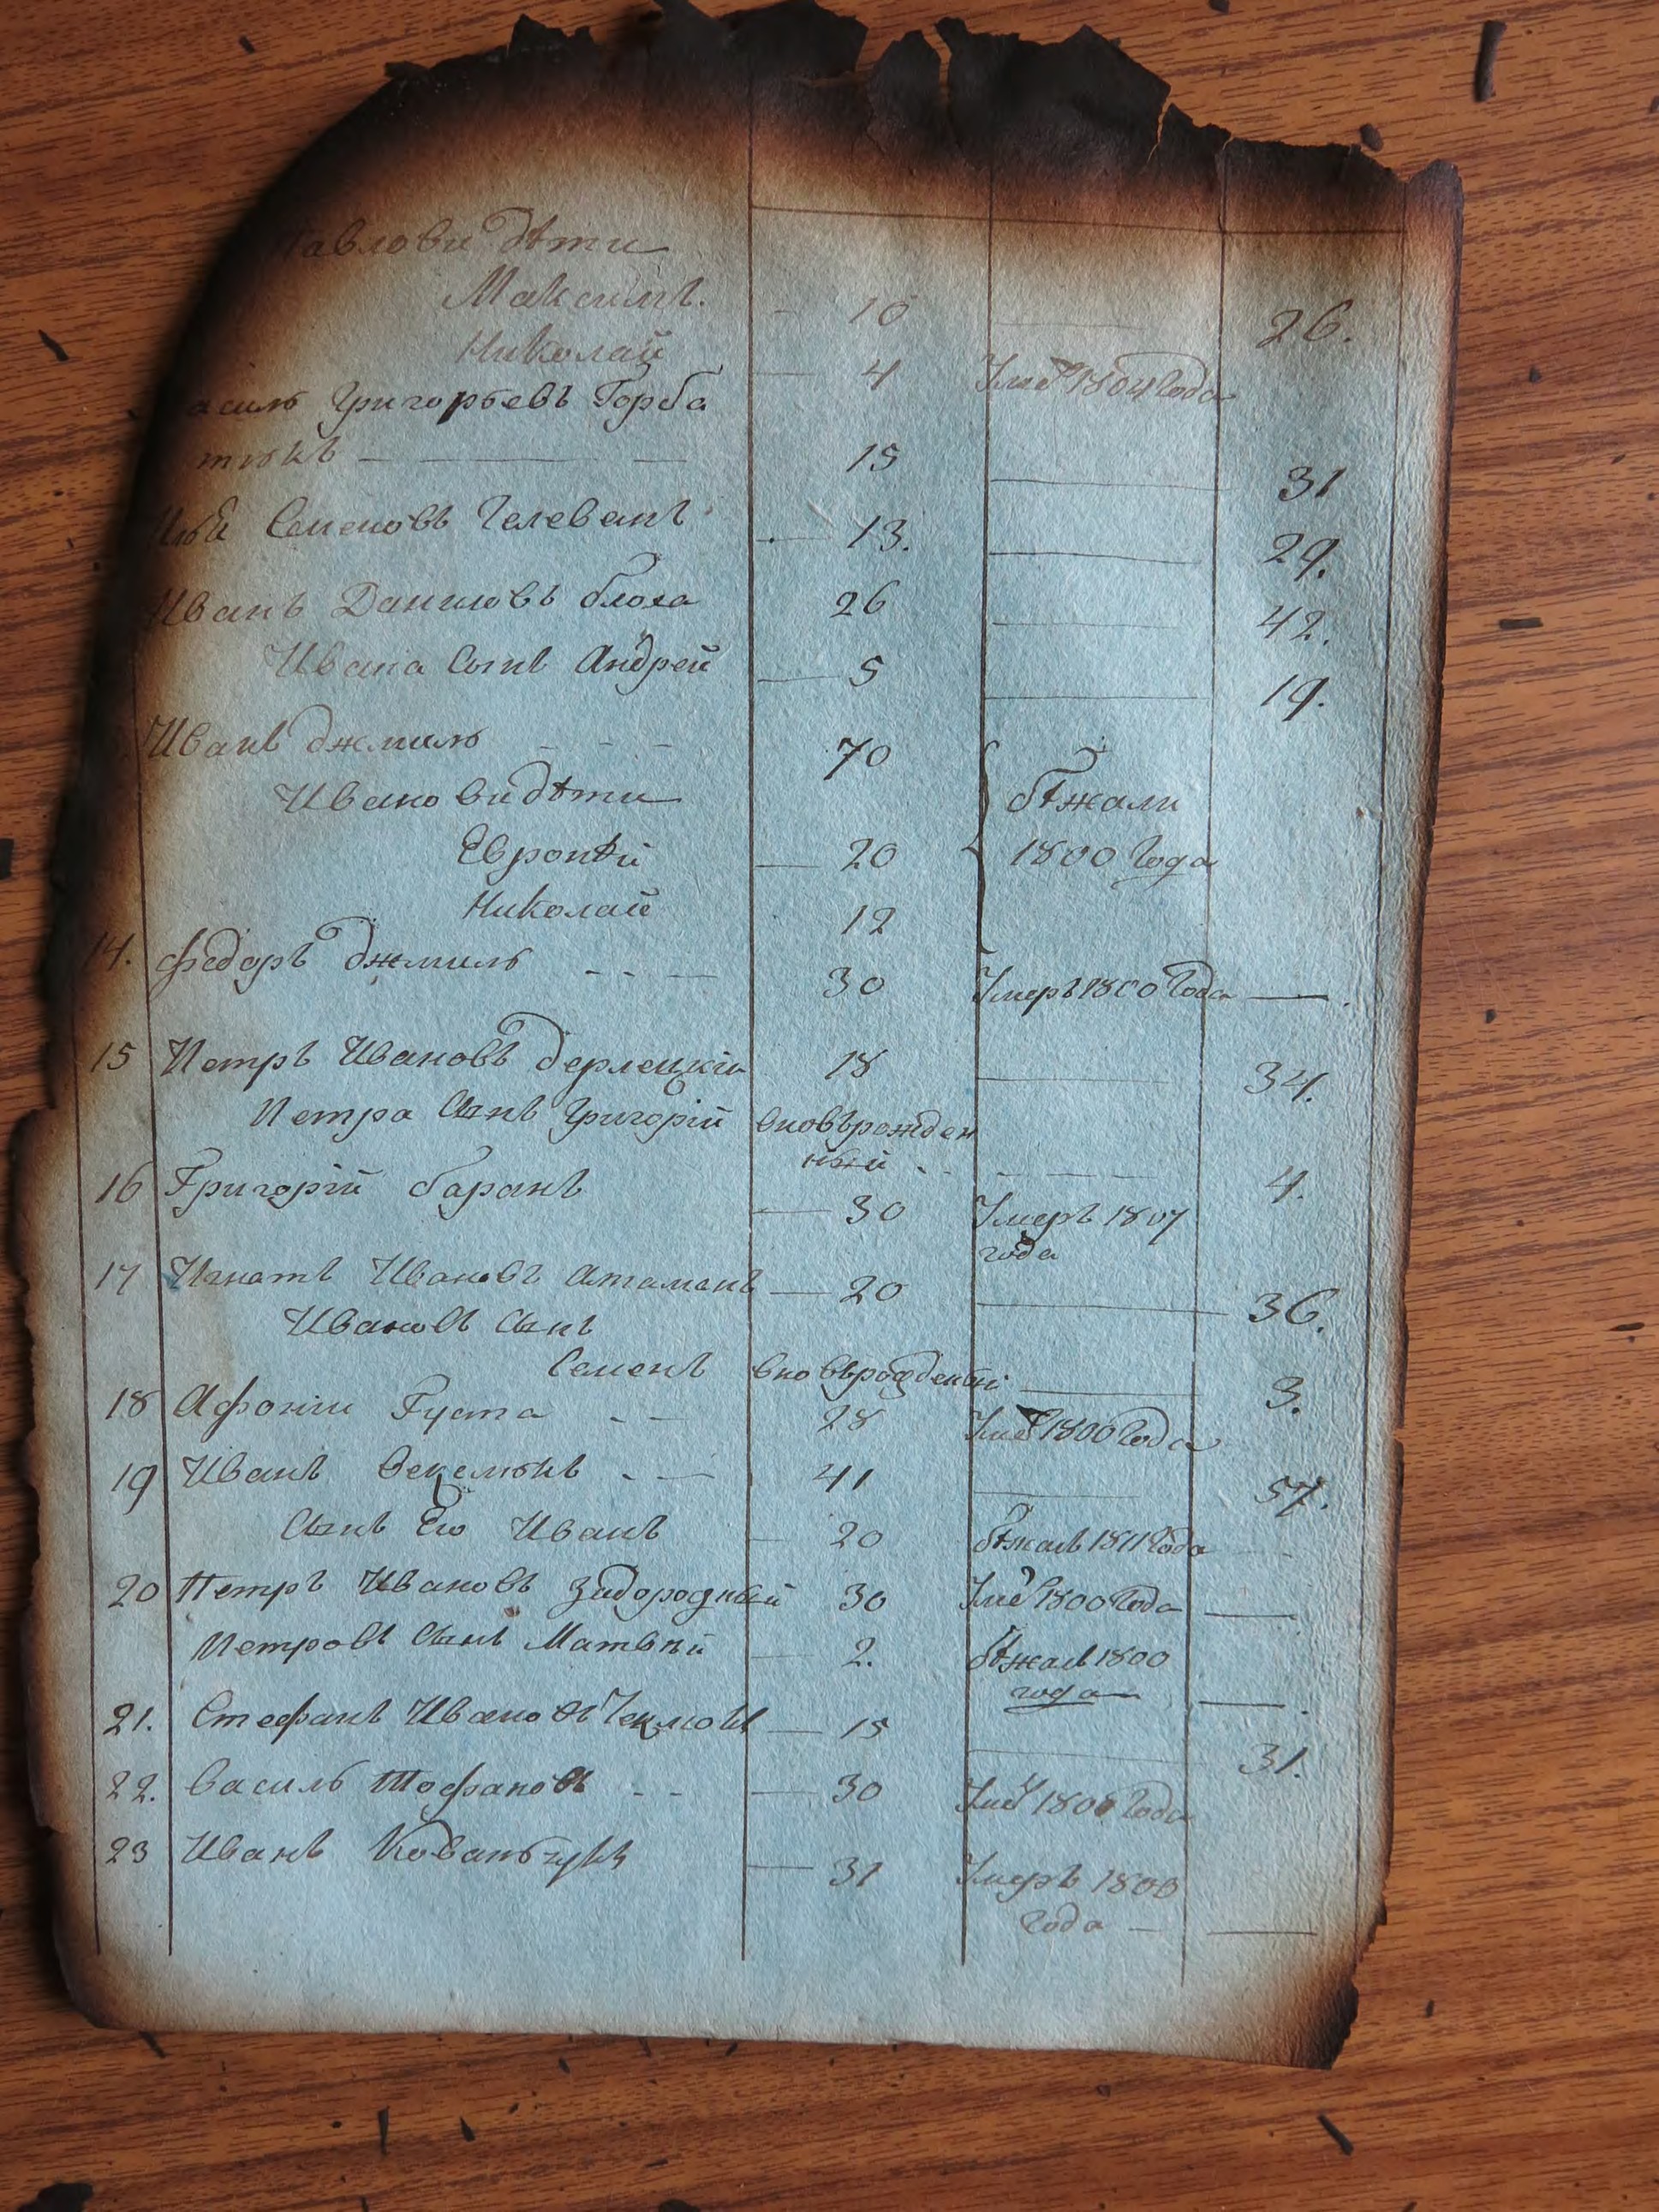 Павлови дѣти
Максимъ. — 10 — 26.
Николай — 4 Умер 1804 Года
асиль Григорьевъ Горба
тюкъ — 15 — 31
Семеновъ Гелеванъ — 13. — 29.
Иванъ Даниловъ блоха 26 — 42.
Ивана Сынъ Андрей — 5 — 19.
Иванъ джмиль - - - 70
Иванови дѣти бѣжали
Евронѣй — 20 1800 Года
Николай 12
14. Федоръ джмиль - - — 30 Умеръ 1800 Года —.
15 Петръ Ивановъ дерлецкій 18 — 34.
Петра Сынъ Григорій вновьрожден
ный - - — 4.
16 Григорій баранъ — 30 Умеръ 1807
года
17 Игнатъ Ивановъ Атаманъ — 20 — 36.
Ивановъ Сынъ
Семенъ вновьрожденый — 3.
18 Афонии Густа - — 28 Умер 1800 Года
19 Иванъ - — 41 — 57.
Сынъ Его Иванъ — 20 бѣжалъ 1811 Года
20 Петръ Ивановъ Задорожный 30 Умер 1800 Года —
Петровъ Сынъ Матвѣй — 2. Бѣжалъ 1800
года — —.
21. Стефанъ Ивановъ — 15 — 31.
22. Василь Тофановъ - - — 30 Умер Года
23 Иванъ Ковальчукъ — 31 Умеръ 1800
Года — —